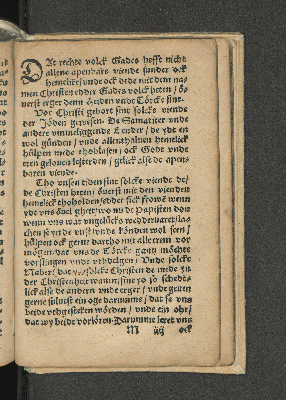 DAt rechte volck Gades hefft nicht
allene apenbare viende sunder ock
hemelike / vnde ock dede mit dem na-
men Christen edder Gades volck heten / ö-
uerst erger denn Heiden vnde Törcke sint.
Vor Christi gebort sint solcke viende
der Jöden gewesen. De Samariter vnde
andere vmmeliggende Lender / de ydt en
wol günden / vnde allenthaluen hemelick
hülpen mede thoblasen / ock Gode vnde
eren gelouen lestreden / gelick alse de apen-
baren viende.
Tho vnsen tiden sint solcke viende de /
de Christen heten / öuerst mit den vienden
hemelick tholholden / edder sick frowen wenn
ydt vns öuel gheit / wo nu de Papisten doen
wenn vns wat vngelücks wedderuart / la-
chen se yn de vust vnde konden wol seen /
hülpen ock gerne dartho mit allerem vor
mögen / dat vns de Törcke gantz möchte
vorslingen vnde vordelgen. Vnde solcke
Nabers / dat ys / solcke Christen de mede yn
der Christenheit wanen / sint so so schedt-
lick alse de andern vnde erger / vnde geuen
gerne süluest ein oge darumme / dat se vns
beide vthgesteken wörden / vnde ein ohr /
dat wy beide vorlören. Darumme leret vns
M iij ock